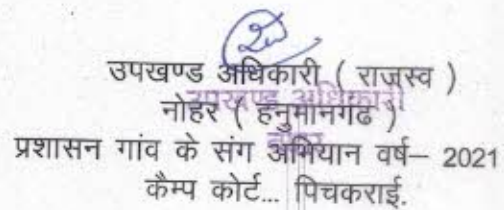 उपखण्ड अधिकारी ( राजस्व )
नोहर ( हनुमानगढ )
उपखण्ड अधिकारी
नोहर
प्रशासन गांव के संग अभियान वर्ष– 2021
कैम्प कोर्ट... पिचकराई.